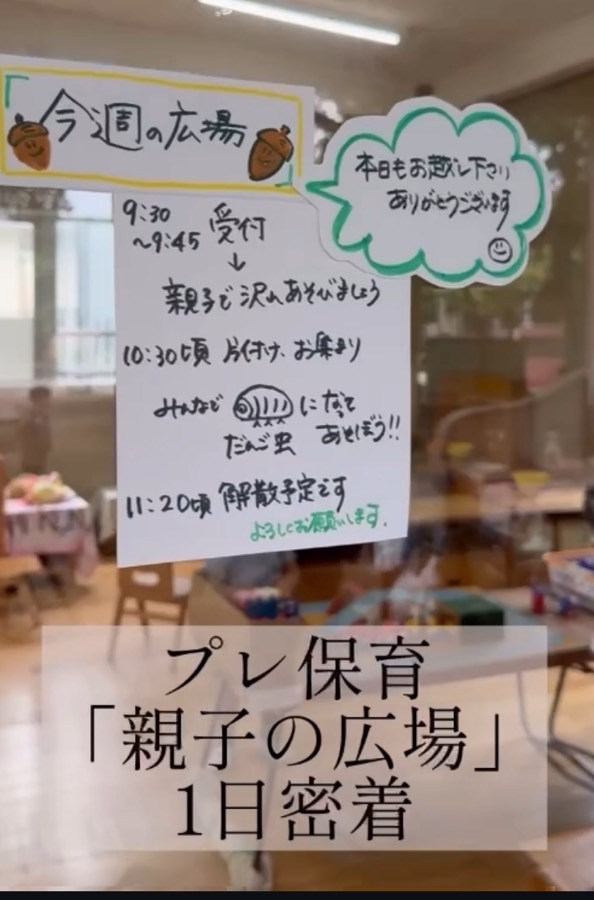 今週の広場
本日もお越し下さり
ありがとうございます
9:30
～9:45 受付
↓
親子で沢山あそびましょう
10:30頃 片付け、お集まり
みんなで になって
だんご虫 あそぼう!!
11:20頃 解散予定です
よろしくお願いします.
プレ保育
「親子の広場」
1日密着